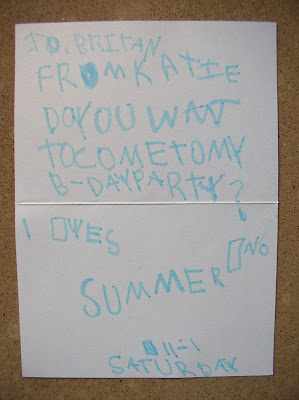 TO, BRITAN
FROM KATIE
DO YOU WANT
TO COME TO MY
B-DAY PARTY?
I □YES
□NO
SUMMER
11-1
SATURDAY